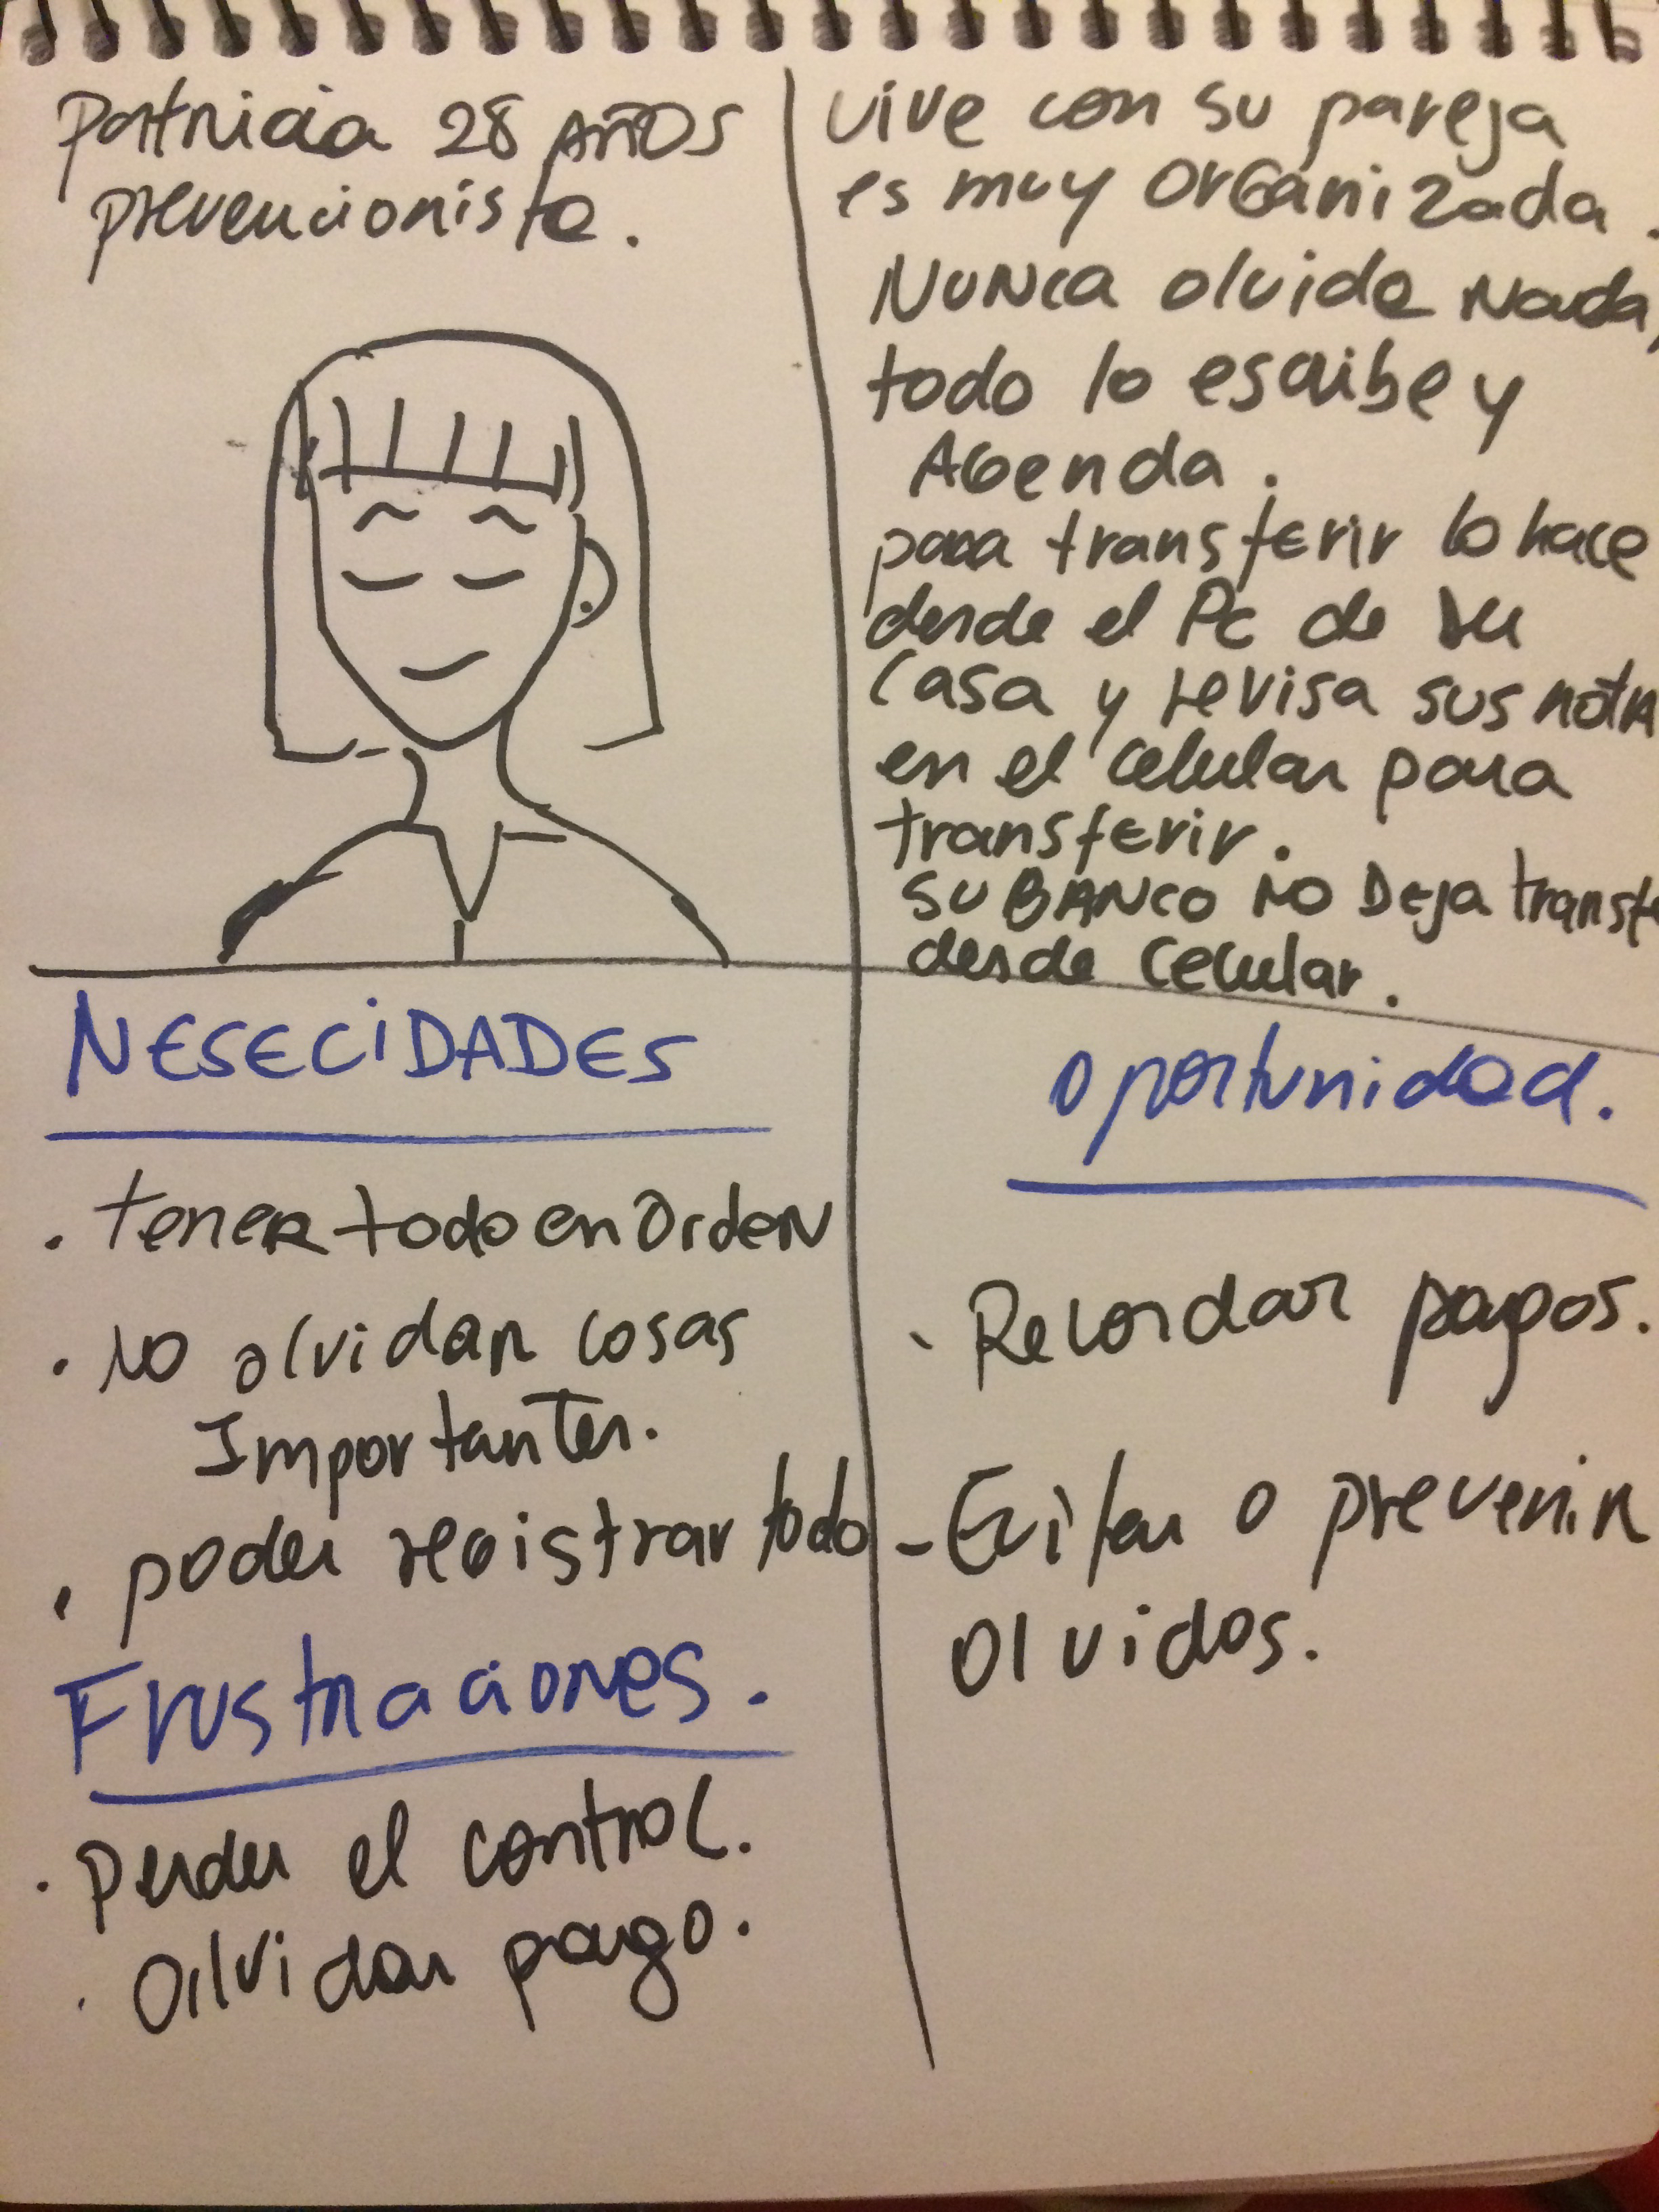 Patricia 28 AÑOS
prevencionista.
vive con su pareja
es muy orGanizada.
NUNca olvida Nada,
todo lo escribe y
AGenda.
para transferir lo hace
desde el Pc de su
casa y revisa sus notas
en el celular para
transferir.
SU BANCO NO Deja transfe
desde celular.
NESECIDADES
. tener todo en OrdeN
. NO olvidar cosas
Importantes.
. poder registrar todo
Frustraciones.
. perder el control.
. Olvidar pago.
oportunidad.
- Recordar pagos.
- Evitar o prevenir
olvidos.